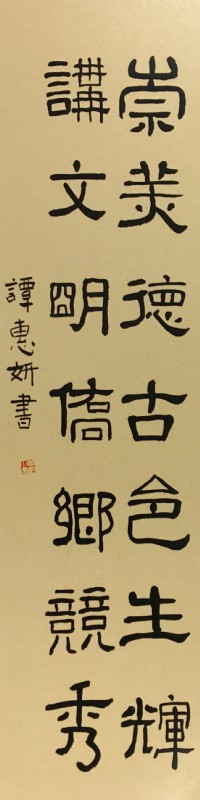 崇美德古色生輝
講文明僑鄉競秀
譚惠妍書